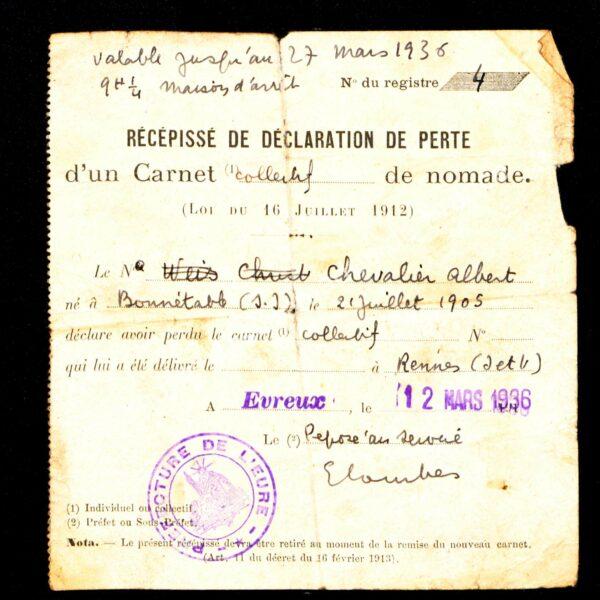 valable jusqu'au 27 mars 1936
9H ¼ maison d'arrêt
N° du registre 4
RÉCÉPISSÉ DE DÉCLARATION DE PERTE
d'un Carnet (1) collectif de nomade.
(LOI DU 16 JUILLET 1912)
Le Nᵉ Weis Chevalier Albert
né à Bonnétable (S.I), le 21 juillet 1905
déclare avoir perdu le carnet (1) collectif N°
qui lui a été délivré le à Rennes (I et V)
A Evreux, le 12 MARS 1936
Le (2)
PRÉFECTURE DE L'EURE
(1) Individuel ou collectif.
(2) Préfet ou Sous-Préfet.
Nota. — Le présent récépissé devra être retiré au moment de la remise du nouveau carnet.
(Art. 11 du décret du 16 février 1913).